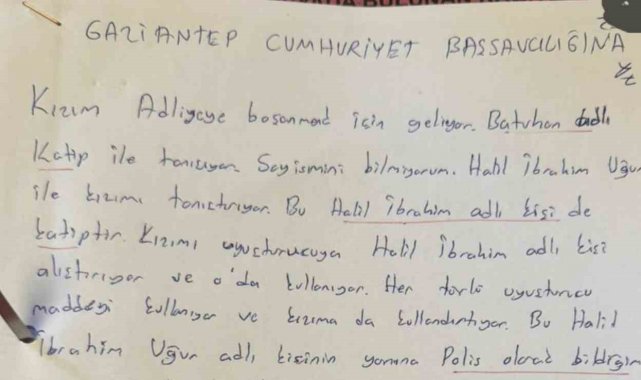 GAZİANTEP CUMHURİYET BASSAVCILIĞINA
Kızım Adliyeye bosanmad için geliyor. Batuhan adlı
Katip ile tanısıyor. Soyismini bilmiyorum. Halil İbrahim Uğur
ile kızımı tanıstırıyor. Bu Halil İbrahim adlı kisi de
katiptir. Kızımı uyusturucuya Halil İbrahim adlı kisi
alıstırıyor ve o'da kullanıyor. Her türlü uyusturucu
maddeyi kullanıyor ve kızıma da kullandırtıyor. Bu Halil
İbrahim Uğur adlı kisinin yanına Polis olarak